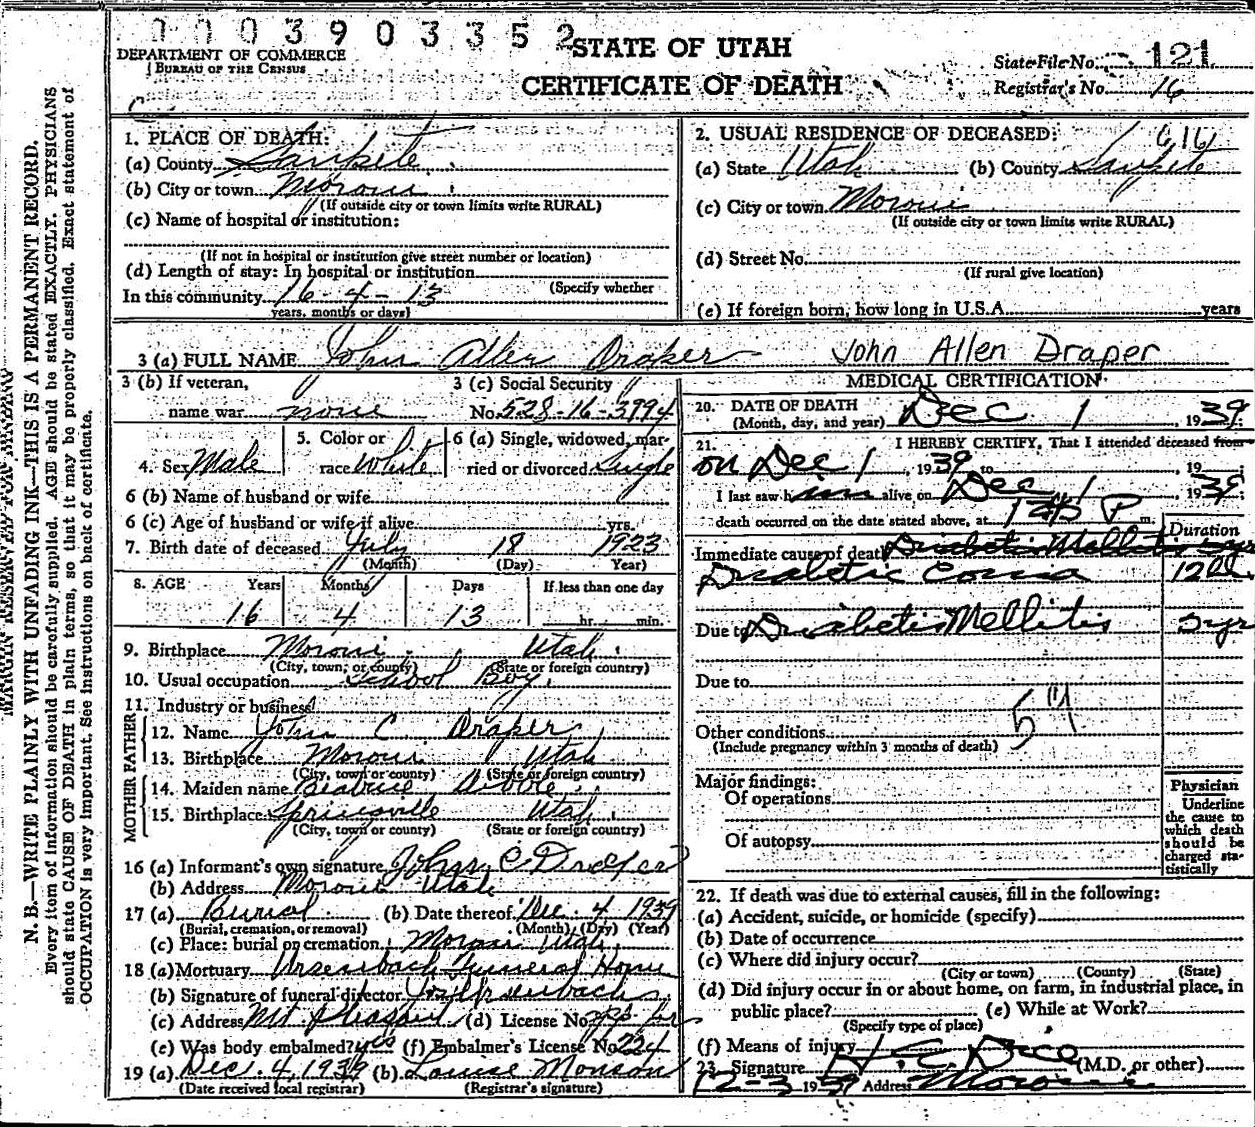 0003903352
STATE OF UTAH
CERTIFICATE OF DEATH
DEPARTMENT OF COMMERCE
BUREAU OF THE CENSUS
State File No. 121
Registrar's No. 16
MARGIN RESERVED FOR BINDING
N. B.—WRITE PLAINLY WITH UNFADING INK—THIS IS A PERMANENT RECORD.
Every item of information should be carefully supplied. AGE should be stated EXACTLY. PHYSICIANS
should state CAUSE OF DEATH in plain terms, so that it may be properly classified. Exact statement of
OCCUPATION is very important. See instructions on back of certificate.
1. PLACE OF DEATH:
(a) County Sanpete
(b) City or town Moroni
(If outside city or town limits write RURAL)
(c) Name of hospital or institution:
(If not in hospital or institution give street number or location)
(d) Length of stay: In hospital or institution
(Specify whether
In this community 16-4-13
years, months or days)
2. USUAL RESIDENCE OF DECEASED: 6161
(a) State Utah (b) County Sanpete
(c) City or town Moroni
(If outside city or town limits write RURAL)
(d) Street No.
(If rural give location)
(e) If foreign born, how long in U.S.A. years
3 (a) FULL NAME John Allen Draper John Allen Draper
3 (b) If veteran,
name war none
3 (c) Social Security
No. 528-16-3994
4. Sex Male
5. Color or
race White
6 (a) Single, widowed, mar-
ried or divorced Single
6 (b) Name of husband or wife
6 (c) Age of husband or wife if alive yrs.
7. Birth date of deceased July 18 1923
(Month) (Day) Year)
8. AGE Years Months Days If less than one day
16 4 13 hr. min.
9. Birthplace Moroni Utah
(City, town, or county) (State or foreign country)
10. Usual occupation School Boy
11. Industry or business
FATHER
12. Name John C Draper
13. Birthplace Moroni Utah
(City, town or county) (State or foreign country)
MOTHER
14. Maiden name Beatrice
15. Birthplace Springville Utah
(City, town or county) (State or foreign country)
16 (a) Informant's own signature Johnny C Draper
(b) Address Moroni Utah
17 (a) Burial (b) Date thereof Dec. 4 1939
(Burial, cremation, or removal) (Month) (Day) (Year)
(c) Place: burial or cremation Moroni Utah
18 (a) Mortuary Ursenbach Funeral Home
(b) Signature of funeral director Ursenbach
(c) Address Mt Pleasant (d) License No.
(e) Was body embalmed? yes (f) Embalmer's License No. 224
19 (a) Dec. 4, 1939 (b) Louise Monson
(Date received local registrar) (Registrar's signature)
MEDICAL CERTIFICATION
20. DATE OF DEATH
(Month, day, and year) Dec 1, 1939
21. I HEREBY CERTIFY, That I attended deceased from
on Dec 1, 1939 to , 19
I last saw him alive on Dec 1, 1939
death occurred on the date stated above, at 145 P m.
Duration
Immediate cause of death Diabetis Mellitis 3yr
Diabetic Coma 12h
Due to Diabetis Mellitis 3yr
Due to
Other conditions
(Include pregnancy within 3 months of death)
Major findings:
Of operations
Of autopsy
Physician
Underline
the cause to
which death
should be
charged sta-
tistically
22. If death was due to external causes, fill in the following:
(a) Accident, suicide, or homicide (specify)
(b) Date of occurrence
(c) Where did injury occur?
(City or town) (County) (State)
(d) Did injury occur in or about home, on farm, in industrial place, in
public place? (e) While at Work?
(Specify type of place)
(f) Means of injury
23. Signature (M.D. or other)
12-3 1939 Address Moroni